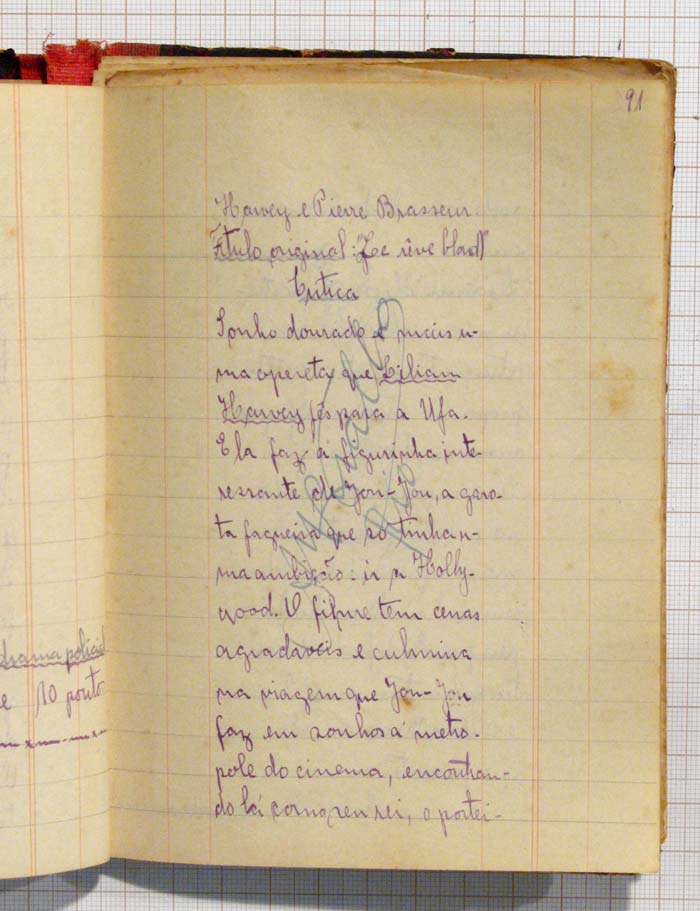 91
Harvey e Pierre Brasseur
Titulo original: "Le rêve blond"
Critica
Sonho dourado é mais u-
ma opereta que Lilian
Harvey fês para a Ufa.
Ela faz a figurinha inte-
ressante de Jou-Jou, a garo-
ta faqueira que só tinha u-
ma ambição: ir a Holly-
wood. O filme tem cenas
agradaveis e culmina
na viagem que Jou-Jou
faz em sonhos á metro-
pole do cinema, encontran-
do lá como seu rei, o portei-
drama policial
e 10 pontos